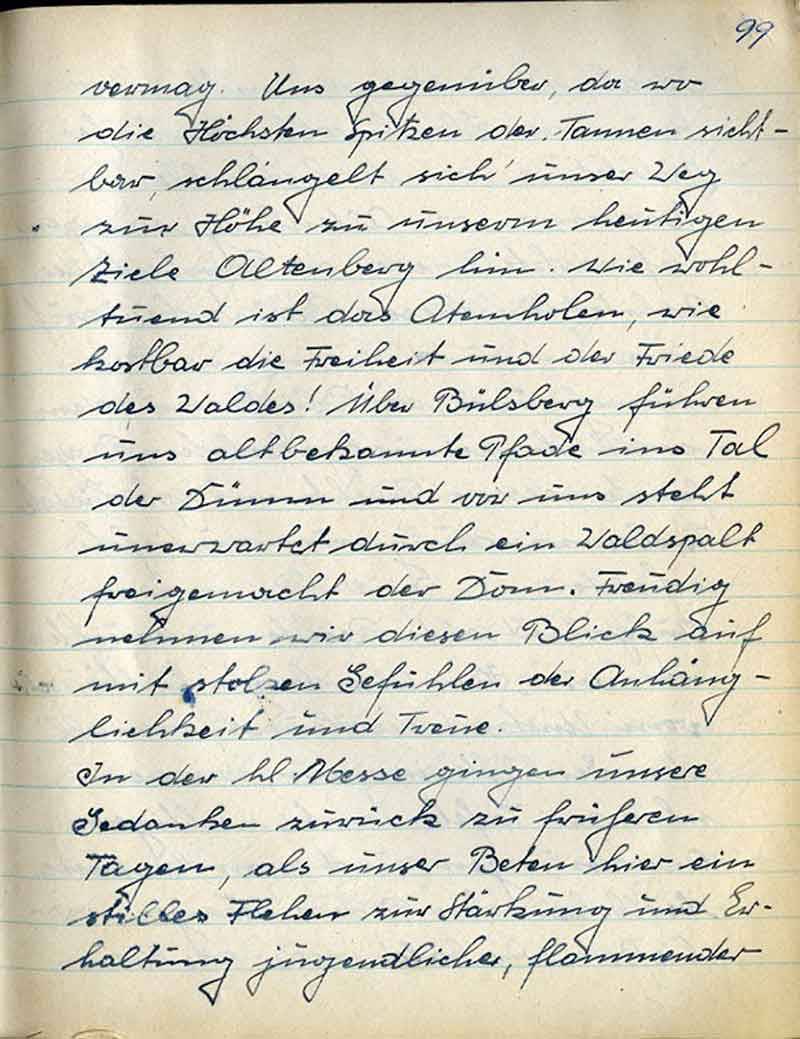 99
vermag. Uns gegenüber, da wo
die Höchsten Spitzen der Tannen sicht-
bar, schlängelt sich unser Weg
zur Höhe zu unserm heutigen
Ziele Altenberg hin. Wie wohl-
tuend ist das Atemholen, wie
kostbar die Freiheit und der Friede
des Waldes! Über Bülsberg führen
uns altbekannte Pfade ins Tal
der Dünn und vor uns steht
unerwartet durch ein Waldspalt
freigemacht der Dom. Freudig
nehmen wir diesen Blick auf
mit stolzen Gefühlen der Anhäng-
lichkeit und Treue.
In der hl. Messe gingen unsere
Gedanken zurück zu früheren
Tagen, als unser Beten hier ein
stilles Flehen zur Stärkung und Er-
haltung jugendlicher, flammender